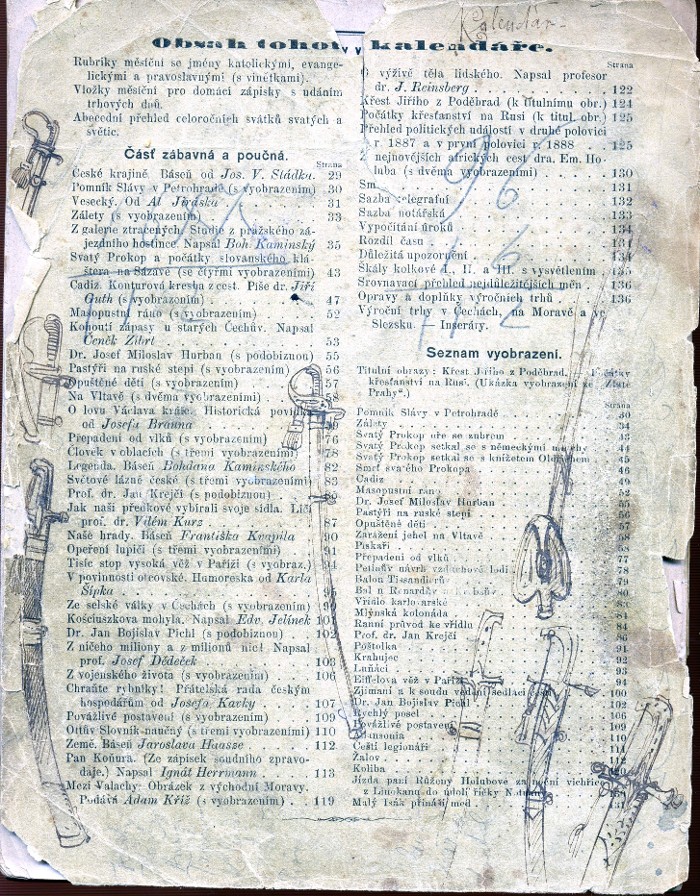 Kalendář
Obsah tohoto kalendáře.
Rubriky měsíční se jmény katolickými, evange-
lickými a pravoslavnými (s vinětkami).
Vložky měsíční pro domácí zápisky s udáním
trhových dnů.
Abecední přehled celoročních svátků svatých a
světic.
Část zábavná a poučná.
Strana
České krajině. Báseň od Jos. V. Sládka. 29
Pomník Slávy v Petrohradě (s vyobrazením) 30
Vesecký. Od Al. Jiráska 31
Zálety (s vyobrazením) 33
Z galerie ztracených. Studie z pražského zá-
jezdního hostince. Napsal Boh. Kaminský 35
Svatý Prokop a počátky slovanského klá-
štera na Sázavě (se čtyřmi vyobrazeními) 43
Cadiz. Konturová kresba z cest. Píše dr. Jiří
Guth (s vyobrazením) 47
Masopustní ráno (s vyobrazením) 52
Kohoutí zápasy u starých Čechův. Napsal
Čeněk Zíbrt 53
Dr. Josef Miloslav Hurban (s podobiznou) 55
Pastýři na ruské stepi (s vyobrazením) 56
Opuštěné děti (s vyobrazením) 57
Na Vltavě (s dvěma vyobrazeními) 58
O lovu Václava krále. Historická povídka
od Josefa Brauna
Přepadení od vlků (s vyobrazením) 76
Člověk v oblacích (s třemi vyobrazeními) 78
Legenda. Báseň Bohdana Kaminského 82
Světové lázně české (s třemi vyobrazeními) 83
Prof. dr. Jan Krejčí (s podobiznou)
Jak naši předkové vybírali svoje sídla. Líčí
prof. dr. Vilém Kurz 87
Naše hrady. Báseň Františka Kvapila 90
Opeření lupiči (s třemi vyobrazeními) 91
Tisíc stop vysoká věž v Paříži (s vyobraz.) 94
V povinnosti otcovské. Humoreska od Karla
Šípka 95
Ze selské války v Čechách (s vyobrazením)
Kościuszkova mohyla. Napsal Edv. Jelínek 101
Dr. Jan Bojislav Pichl (s podobiznou) 102
Z ničeho miliony a z milionů nic! Napsal
prof. Josef Dědeček 103
Z vojenského života (s vyobrazením) 106
Chraňte rybníky! Přátelská rada českým
hospodářům od Josefa Kafky 107
Povážlivé postavení (s vyobrazením) 109
Ottův Slovník naučný (s třemi vyobrazeními) 110
Země. Báseň Jaroslava Haasze 112
Pan Koňura. (Ze zápisek soudního zpravo-
daje.) Napsal Ignát Herrmann 113
Mezi Valachy. Obrázek z východní Moravy.
Podává Adam Kříž (s vyobrazením) 119
Strana
O výživě těla lidského. Napsal profesor
dr. J. Reinsberg 122
Křest Jiřího z Poděbrad (k titulnímu obr.) 124
Počátky křesťanství na Rusi (k titul. obr.) 125
Přehled politických událostí v druhé polovici
r. 1887 a v první polovici r. 1888 125
Z nejnovějších afrických cest dra. Em. Ho-
luba (s dvěma vyobrazeními) 130
131
Sazba telegrafní 132
Sazba notářská 133
Vypočítání úroků 134
Rozdíl času 134
Důležitá upozornění 134
Škály kolkové I., II. a III. s vysvětlením 135
Srovnavací přehled nejdůležitějších měn 136
Opravy a doplňky výročních trhů 136
Výroční trhy v Čechách, na Moravě a ve
Slezsku. — Inseráty.
Seznam vyobrazení.
Titulní obrazy: Křest Jiřího z Poděbrad. Počátky
křesťanství na Rusi. (Ukázka vyobrazení ze „Zlaté
Prahy“.)
Strana
Pomník Slávy v Petrohradě 30
Zálety 34
Svatý Prokop oře se zubrem 43
Svatý Prokop setkal se s německými mnichy 44
Svatý Prokop setkal se s knížetem Oldřichem 45
Smrť svatého Prokopa 46
Cadiz 49
Masopustní ráno 52
Dr. Josef Miloslav Hurban 55
Pastýři na ruské stepi 56
Opuštěné děti
Zaražení jehel na Vltavě 58
Pískaři 58
Přepadení od vlků 77
Petinův návrh vzduchové lodi 78
Balon Tissandierů 79
80
Vřídlo karlovarské 83
Mlýnská kolonáda 84
Ranní průvod ke vřídlu 84
Prof. dr. Jan Krejčí 86
Poštolka 91
Krahujec 92
Luňáci 93
Eiffelova věž v Paříži 94
Zjímaní a k soudu vedení sedláci čeští 100
Dr. Jan Bojislav Pichl 102
Rychlý posel 106
Povážlivé postavení 109
110
Čeští legionáři 111
Žalov 112
Koliba 120
Jízda paní Růženy Holubové za noční vichřice
z Linokanu do údolí říčky
Malý Isák přináší med 131
96
+6